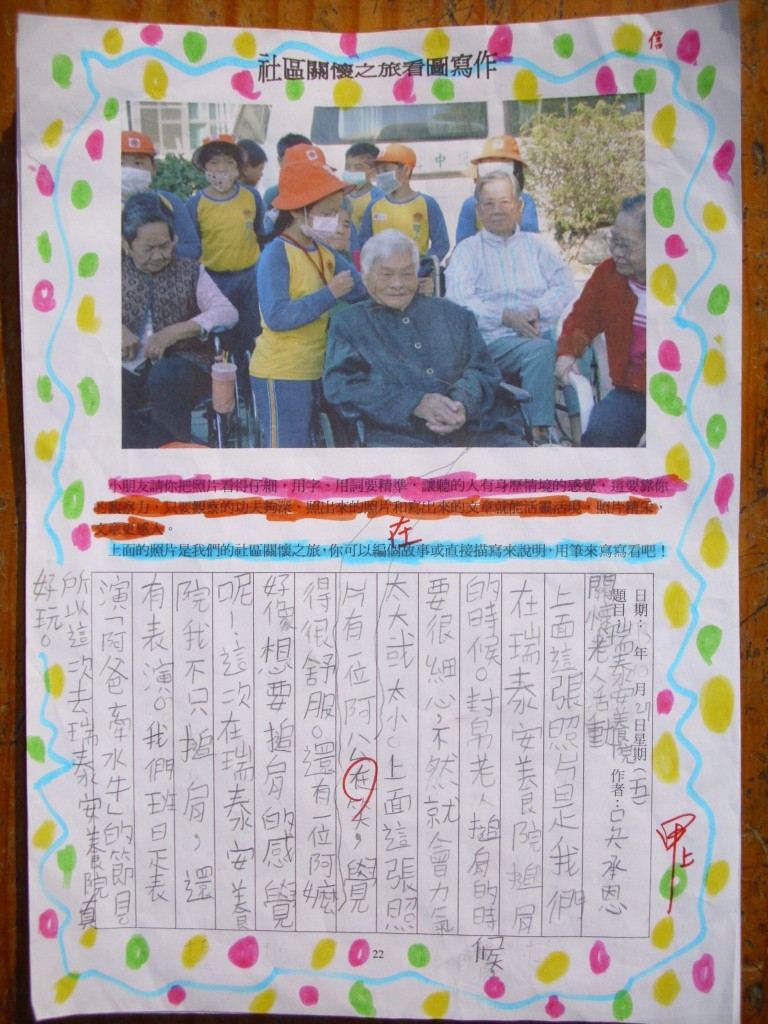 信
社區關懷之旅看圖寫作
甲上
小朋友請你把照片看得仔細，用字、用詞要精準，讓聽的人有身歷情境的感覺，這要靠你
的觀察力，只要觀察的功夫夠深，照出來的照片和寫出來的文章就能活靈活現，照片精采，
文章更感人。
在
上面的照片是我們的社區關懷之旅，你可以編個故事或直接描寫來說明，用筆來寫寫看吧！
日期： 年10月29日星期（五） 作者：吳承恩
題目：瑞泰安養院
關懷老人活動
上面這張照片是我們
在瑞泰安養院搥肩
的時候。封帛老人搥肩的時候
要很細心，不然就會力氣
太大或太小。上面這張照
片有一位阿公在笑，覺
得很舒服。還有一位阿嬤
好像想要搥肩的感覺
呢！這次在瑞泰安養
院我不只搥肩，還
有表演。我們班是表
演「阿爸牽水牛」的節目。
所以這次去瑞泰安養院真
好玩。
22